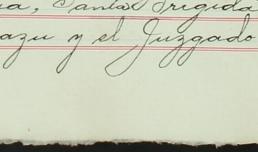 ia, Santa Brigida
azu y el Juzgado